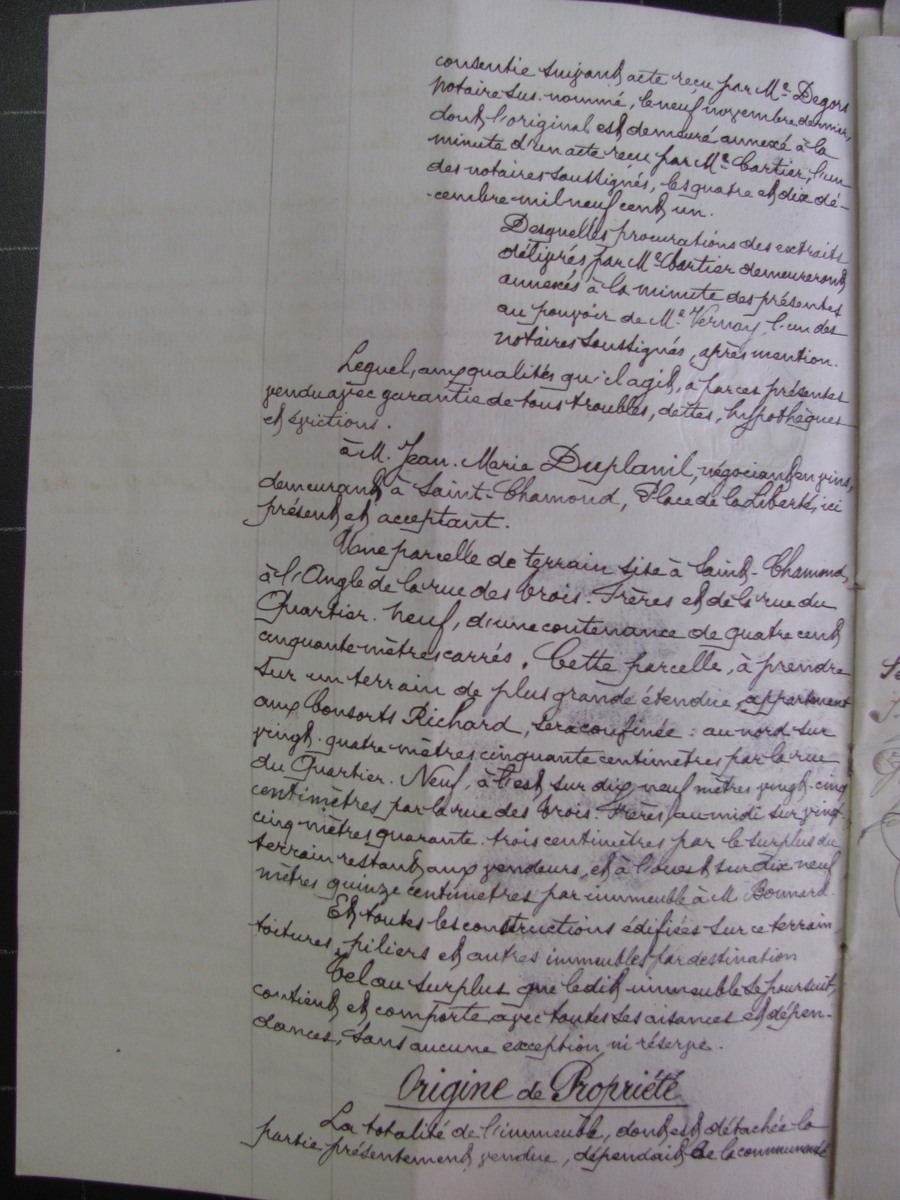 consentie suivant acte reçu par Me Degors
notaire sus-nommé, le neuf novembre dernier,
dont l'original est demeuré annexé à la
minute d'un acte reçu par Me Cartier, l'un
des notaires soussignés, les quatre et dix dé-
-cembre mil neuf cent un.
Desquelles procurations des extraits
délivrés par Me Cartier demeureront
annexés à la minute des présentes
au pouvoir de Me Vernay, l'un des
notaires soussignés, après mention.
Lequel, aux qualités qu'il agit, a par ces présentes
vendu avec garantie de tous troubles, dettes, hypothèques
et évictions.
à M. Jean-Marie Duplanil, négociant en vins,
demeurant à Saint-Chamond, Place de la Liberté, ici
présent et acceptant.
Une parcelle de terrain sise à Saint-Chamond,
à l'Angle de la rue des Trois-Frères et de la rue du
Quartier-Neuf, d'une contenance de quatre cent
cinquante mètres carrés. Cette parcelle, à prendre
sur un terrain de plus grande étendue, appartenant
aux consorts Richard, sera confinée : au nord sur
vingt-quatre mètres cinquante centimètres par la rue
du Quartier-Neuf, à l'est sur dix neuf mètres vingt-cinq
centimètres par la rue des Trois-Frères, au midi sur vingt-
cinq mètres quarante-trois centimètres par le surplus du
terrain restant aux vendeurs, et à l'ouest sur dix neuf
mètres quinze centimètres par immeuble à M. Bonnard.
Et toutes les constructions édifiées sur ce terrain,
toitures, piliers et autres immeubles par destination
Tel au surplus que ledit immeuble se poursuit,
contient et comporte avec toutes ses aisances et dépen-
dances, sans aucune exception ni réserve.
Origine de Propriété
La totalité de l'immeuble, dont est détachée la
partie présentement vendue, dépendait de la communauté